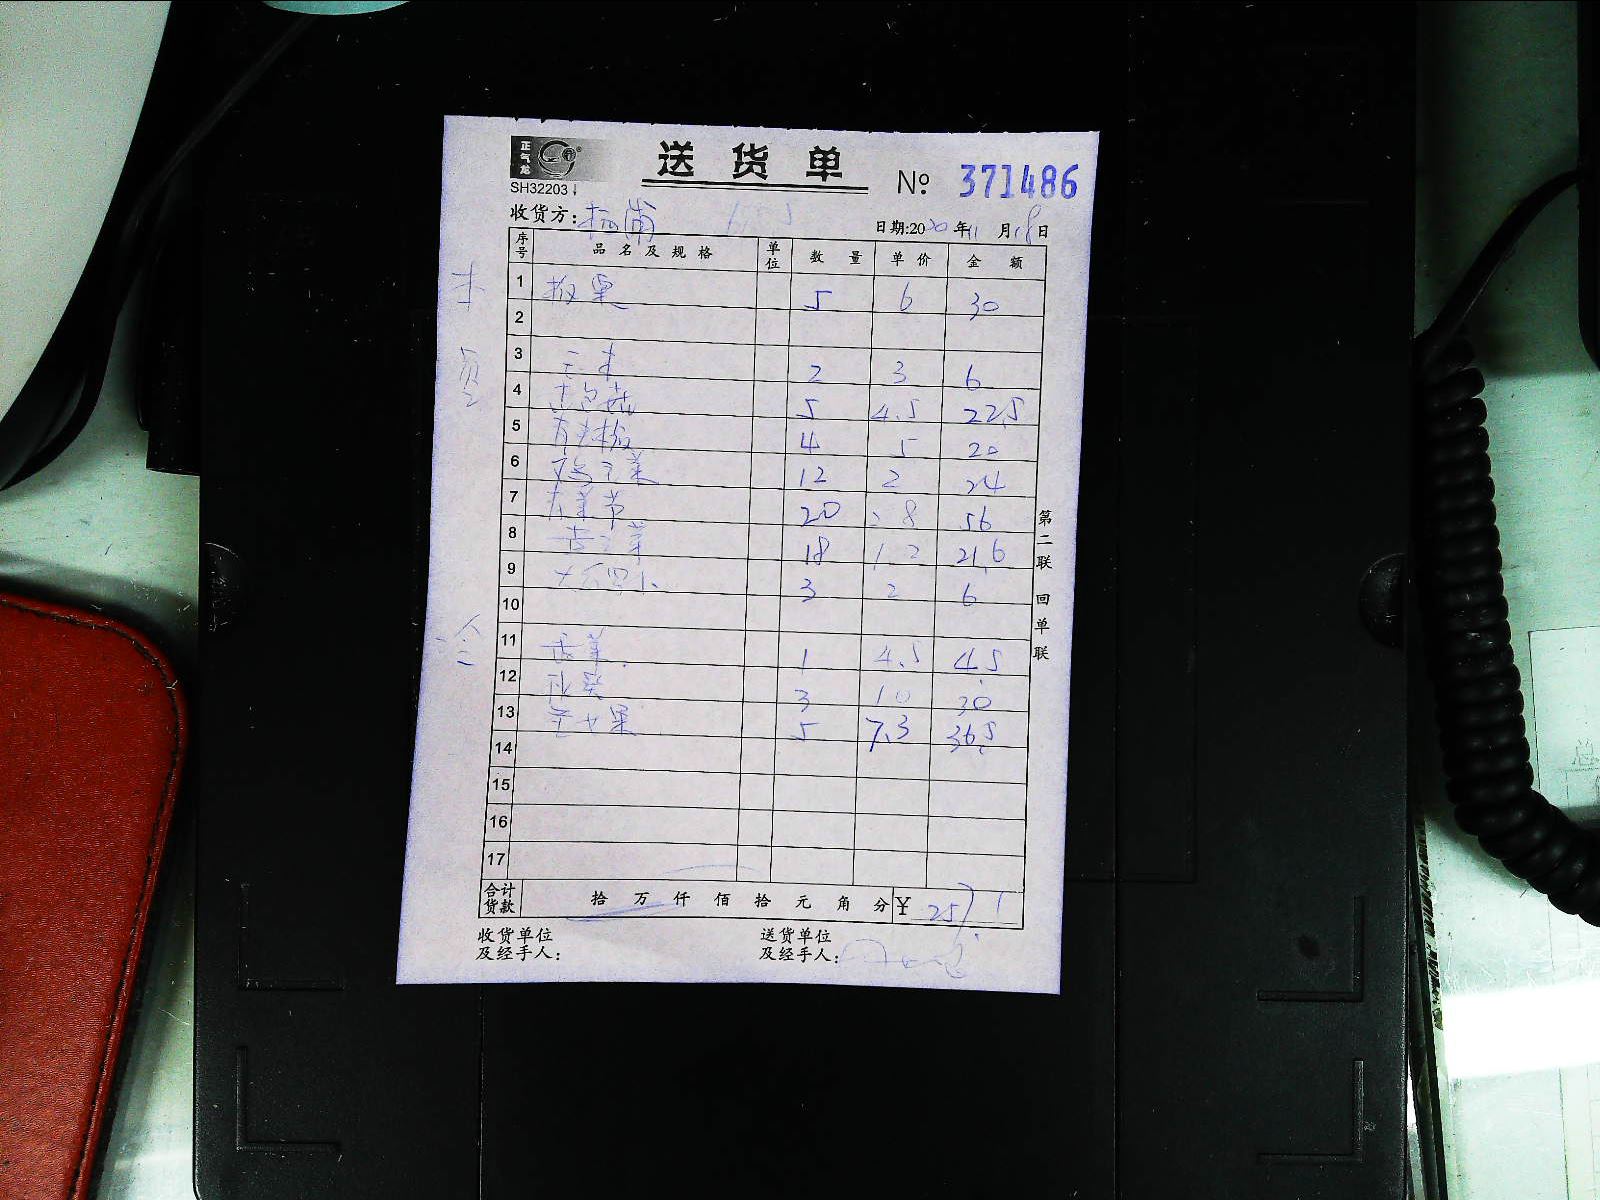 正气龙
送货单
SH32203
№ 371486
收货方: 杨浦
日期:2020年11月18日
序号 品名及规格 单位 数量 单价 金额
1 板栗 5 6 30
2
3 2 3 6
4 5 4.5 22.5
5 4 5 20
6 鸡毛菜 12 2 24
7 20 2.8 56
8 18 1.2 21.6
9 3 2 6
10
11 香菜 1 4.5 4.5
12 秋葵 3 10 30
13 圣女果 5 7.3 36.5
14
15
16
17
合计货款 拾 万 仟 佰 拾 元 角 分 ¥ 257.1
收货单位及经手人:
送货单位及经手人:
第二联 回单联